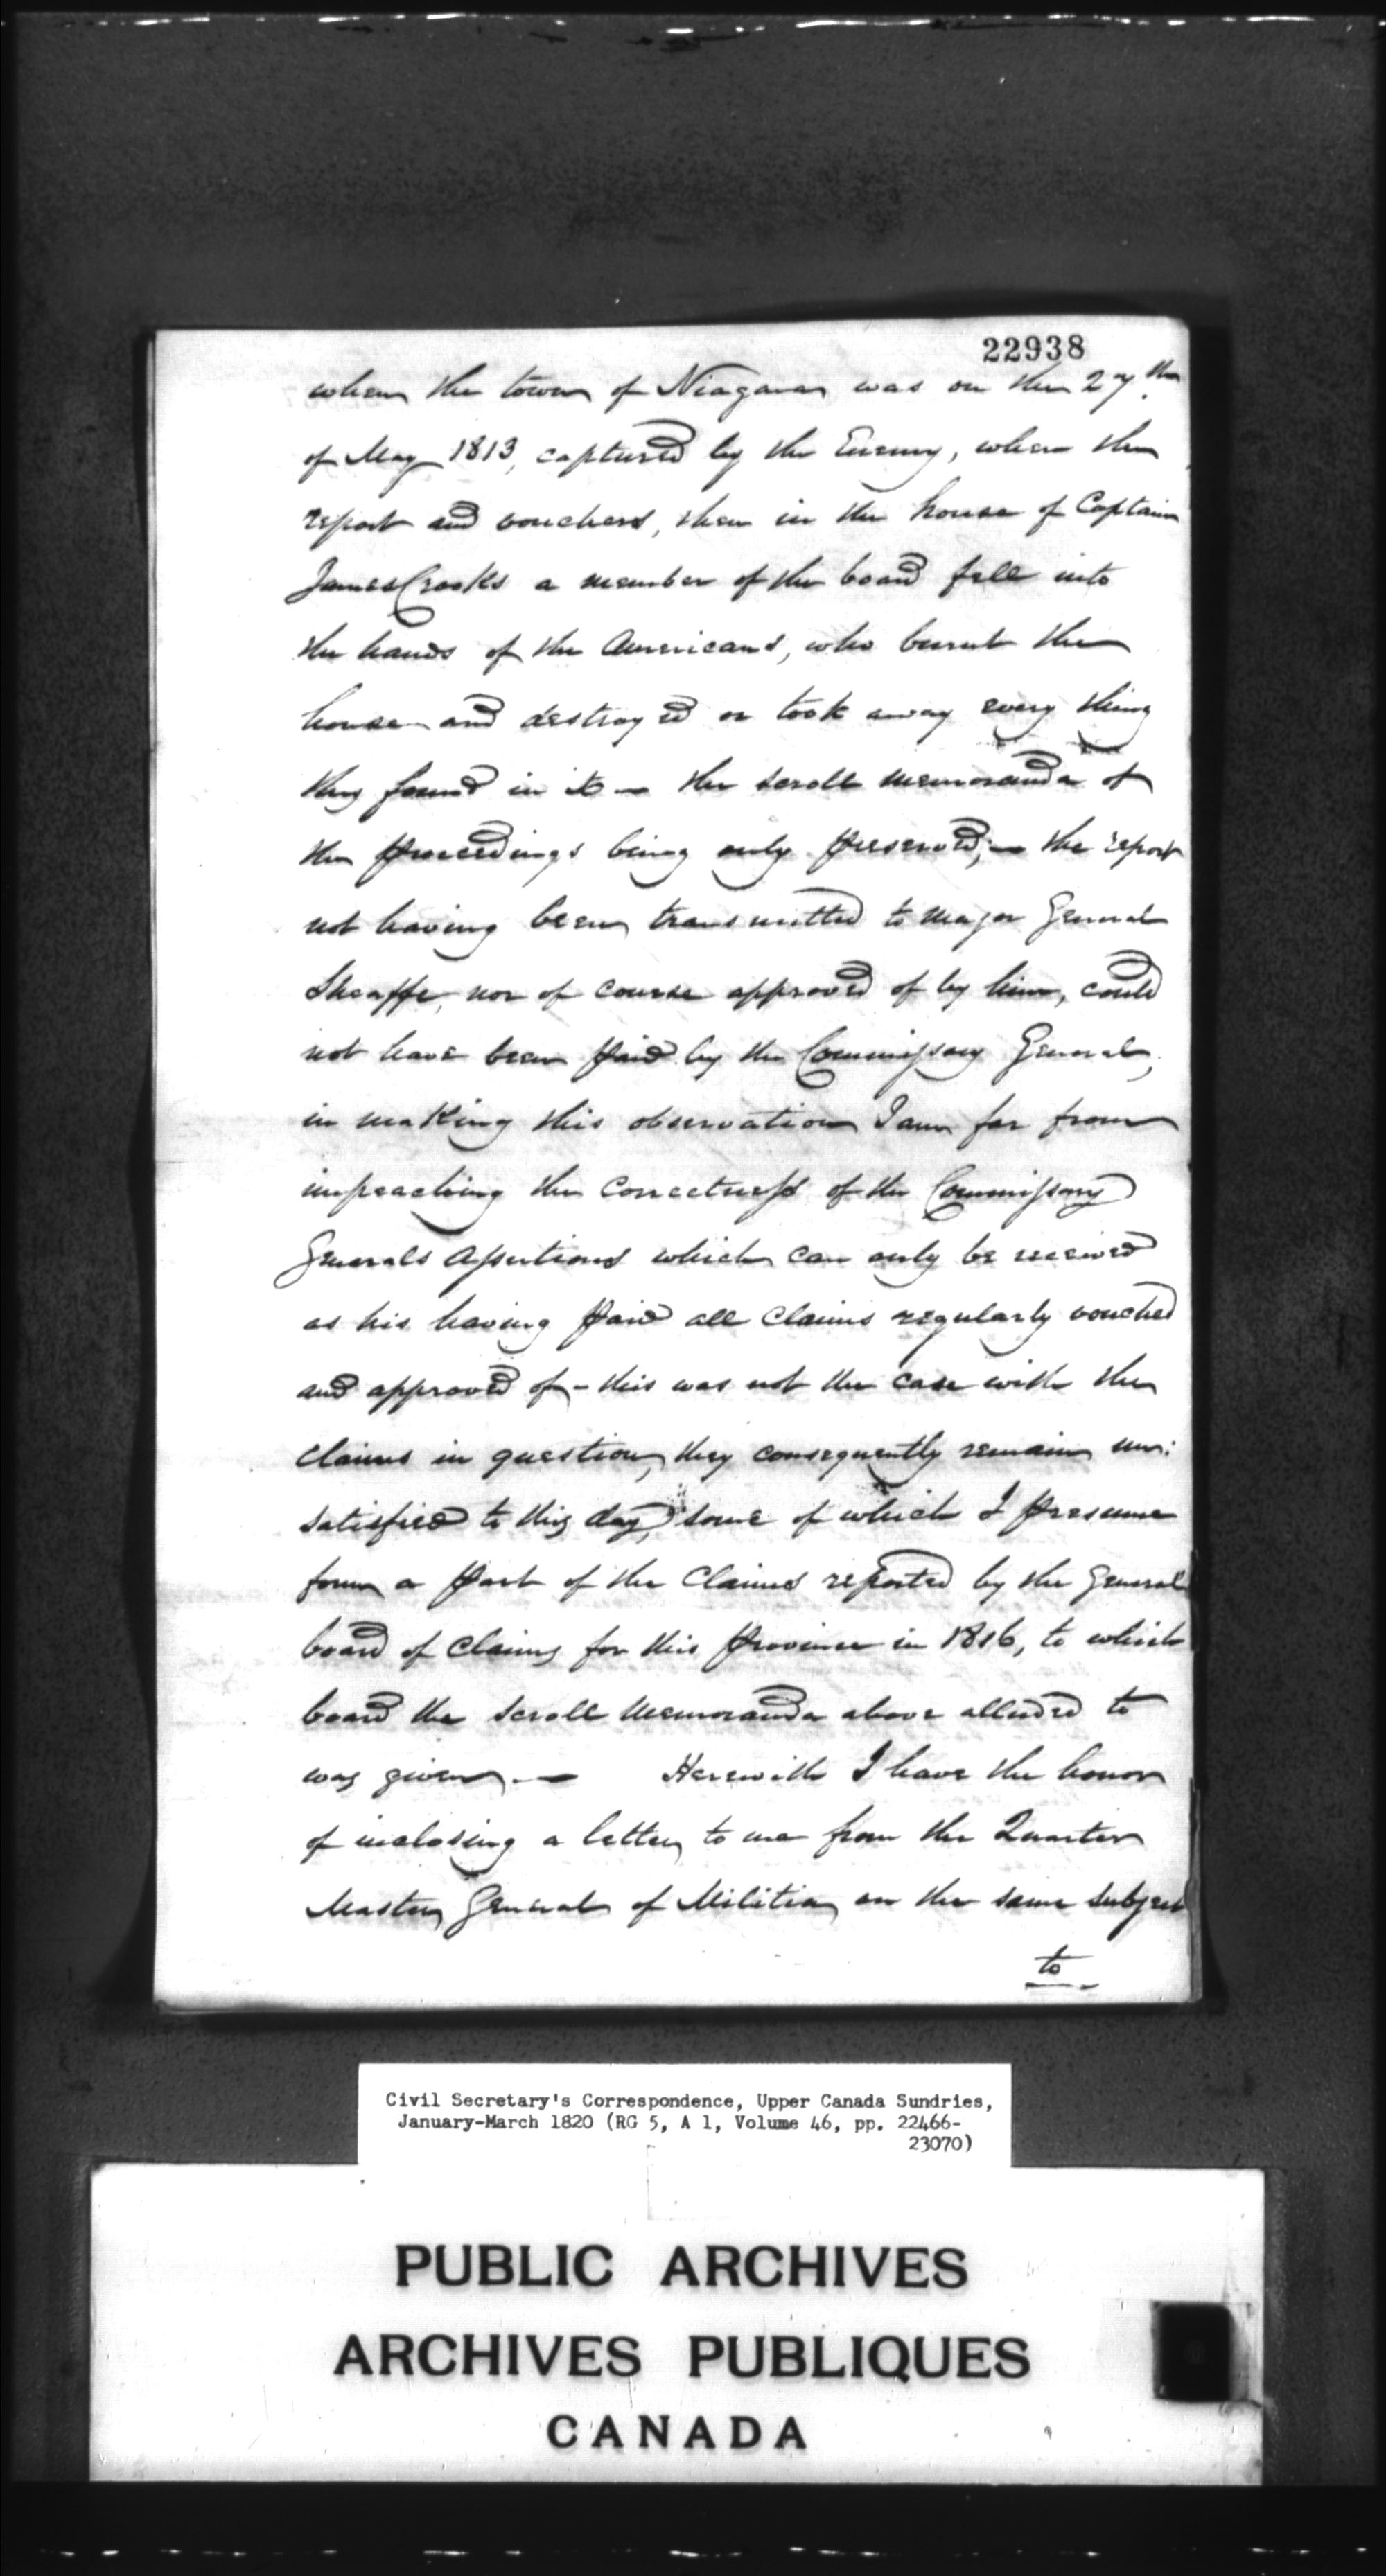 22938
when the town of Niagara was on the 27.th
of May 1813, captured by the Enemy, when the
report and vouchers, then in the house of Captain
James Crooks a member of the board fell into
the hands of the Americans, who burnt the
house and destroyed or took away every thing
they found in it — the scroll memoranda of
the proceedings being only preserved; — the report
not having been transmitted to Major General
Sheaffe, nor of course approved of by him, could
not have been paid by the Commissary General,
in making this observation I am far from
impeaching the correctness of the Commissary
Generals assertions which can only be received
as his having paid all claims regularly vouched
and approved of - this was not the case with the
claims in question, they consequently remain un:
satisfied to this day, some of which I presume
form a part of the Claims reported by the General
board of Claims for this province in 1816, to which
board the scroll memoranda above alluded to
was given. — Herewith I have the honor
of inclosing a letter to me from the Quarter
Master General of Militia on the same subject
to
Civil Secretary's Correspondence, Upper Canada Sundries,
January-March 1820 (RG 5, A 1, Volume 46, pp. 22466-
23070)
PUBLIC ARCHIVES
ARCHIVES PUBLIQUES
CANADA